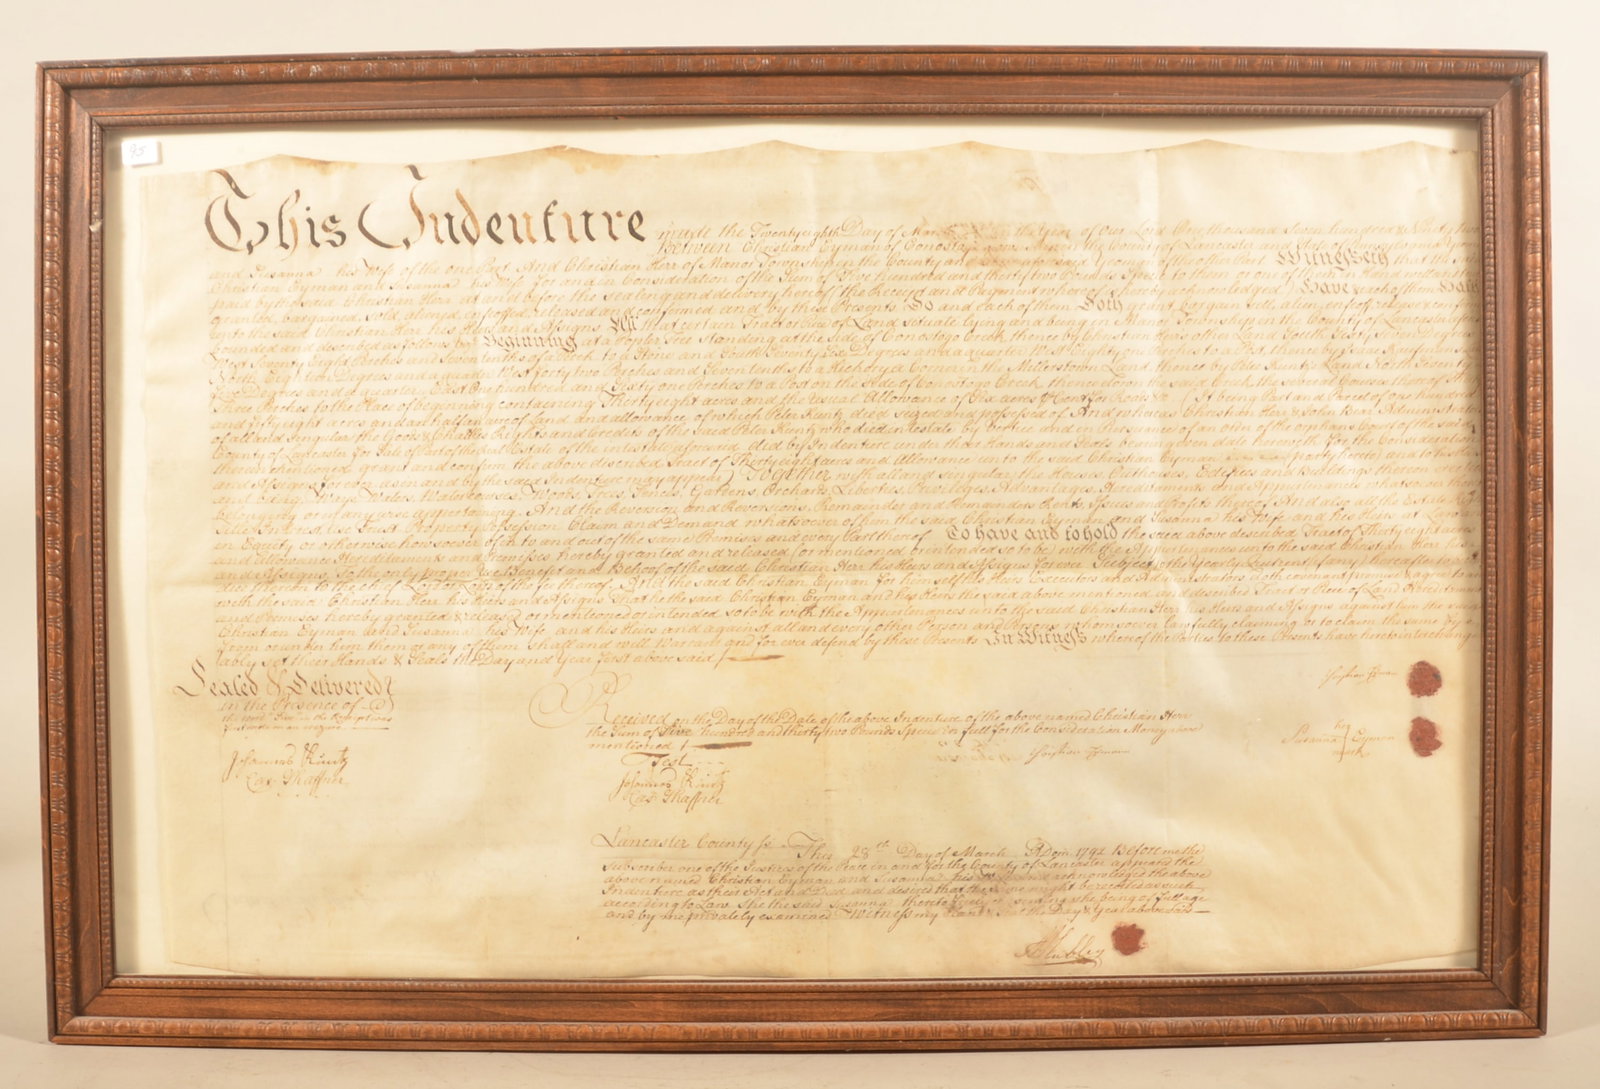 95
This Indenture made the Twenty eighth Day of March in the Year of Our Lord One thousand Seven hundred & Ninety two
Between Christian Eyman of Conostogo in the County of Lancaster and State of Pensylvania Yeoman
and Susanna his Wife of the one Part And Christian Herr of Manor Township in the County aforesaid Yeoman of the other Part Witnesseth that the said
Christian Eyman and Susanna his Wife for and in Consideration of the Sum of Five hundred and thirty two Pounds Specie to them or one of them in Hand well and truly
paid by the said Christian Herr at and before the sealing and delivery hereof the Receipt and Payment whereof is hereby acknowledged Have & each of them Hath
granted, bargained, sold, aliened, enfeoffed, released and confirmed and by these Presents Do and each of them Doth grant bargain sell, alien, enfeoff release & confirm
unto the said Christian Herr his Heirs and Assigns All that certain Tract or Piece of Land situate lying and being in Manor Township in the County of Lancaster aforesaid
bounded and described as follows Beginning at a Popler Tree standing at the side of Conostogo Creek thence by Christian Herrs other Land South Sixty Seven Degrees
West Seventy Eight Perches and Seven tenths of a Perch to a Stone and South Seventy Degrees and a quarter West Eighty one Perches to a Post, thence by Isaac Kaufmans
North Eighteen Degrees and a quarter West forty two Perches and Seven tenths to a Hickory a Corner in the Millerstown Land, thence by Peter Kuntz's Land North Seventy
Degrees and a quarter East One hundred and Sixty one Perches to a Post on the side of Conostogo Creek thence down the said Creek the several Courses thereof Thirty
Three Perches to the Place of beginning containing Thirty eight acres and the usual Allowance of Six acres Cent for Roads &c. (It being Part and Parcel of one hundred
and forty eight acres and an half an acre of Land and allowance of which Peter Kuntz died seized and possessed of And whereas Christian Herr & John Bear Administrators
of all and Singular the Goods & Chattles Rights and Credits of the said Peter Kuntz who died intestate by Vertue and in Pursuance of an order of the orphans Court of the said
County of Lancaster for Sale of Part of the Real Estate of the intestate aforesaid did by Indenture under their Hands and Seals bearing even date herewith for the Consideration
therein mentioned grant and confirm the above described Tract of Thirty eight acres and Allowance unto the said Christian Eyman (party hereto) and to his Heirs
and Assigns forever as in and by the said Indenture may appear) Together with all and singular the Houses, Outhouses, Edifices and Buildings thereon erected
and being, Ways, Waters, Watercourses, Woods, Trees, Fences, Gardens, Orchards, Liberties, Priviledges, Advantages, Hereditaments and Appurtenances whatsoever thereto
belonging or in any wise appertaining. And the Reversion and Reversions, Remainder and Remainders Rents, Issues and Profits thereof And also all the Estate Right
Title Interest, Use Trust Property Possession Claim and Demand whatsoever of him the said Christian Eyman and Susanna his Wife and his Heirs at Law and
in Equity or otherwise howsoever of in to and out of the same Premises and every Part thereof To have and to hold the said above described Tract of Thirty eight acres
and allowance Hereditaments and Premises hereby granted and released (or mentioned or intended so to be) with the Appurtenances unto the said Christian Herr his
and Assigns To the only proper Use Benefit and Behoof of the said Christian Herr his Heirs and Assigns forever Subject
the Lord or Lords of the fee thereof. And the said Christian Eyman for himself his Heirs Executors and Administrators doth covenant promise & agree to and
with the said Christian Herr his Heirs and Assigns That he the said Christian Eyman and his Heirs the said above mentioned and described Tract or Piece of Land Hereditaments
and Premises hereby granted & released or mentioned or intended so to be with the Appurtenances unto the said Christian Herr his Heirs and Assigns against him the said
Christian Eyman and Susanna his Wife and his Heirs and against all and every other Person and Persons whomsoever lawfully claiming or to claim the same by
from or under him them or any of them shall and will Warrant and for ever defend by these Presents In Witness whereof the Parties to these Presents have hereto interchange
ably set their Hands & Seals the Day and Year first above said
Sealed & Delivered
in the Presence of
Johannes Kuntz
Received on the Day of the Date of the above Indenture of the above named Christian Herr
the Sum of Five hundred and thirty two Pounds Specie in full for the Consideration Money above
mentioned
Test
Johannes Kuntz
Christian Eyman
Christian Eyman
her
Susanna Eyman
mark
Lancaster County ss. This 28th Day of March A Dom. 1792 Before me the
Subscriber one of the Justices of the Peace in and for the County of Lancaster appeared the
above named Christian Eyman and Susanna his Wife and acknowledged the above
Indenture as their Act and Deed and desired that the same might be recorded as such
according to Law She the said Susanna thereto freely consenting she being of full age
and by me privately examined Witness my Hand & Seal the Day & Year above said